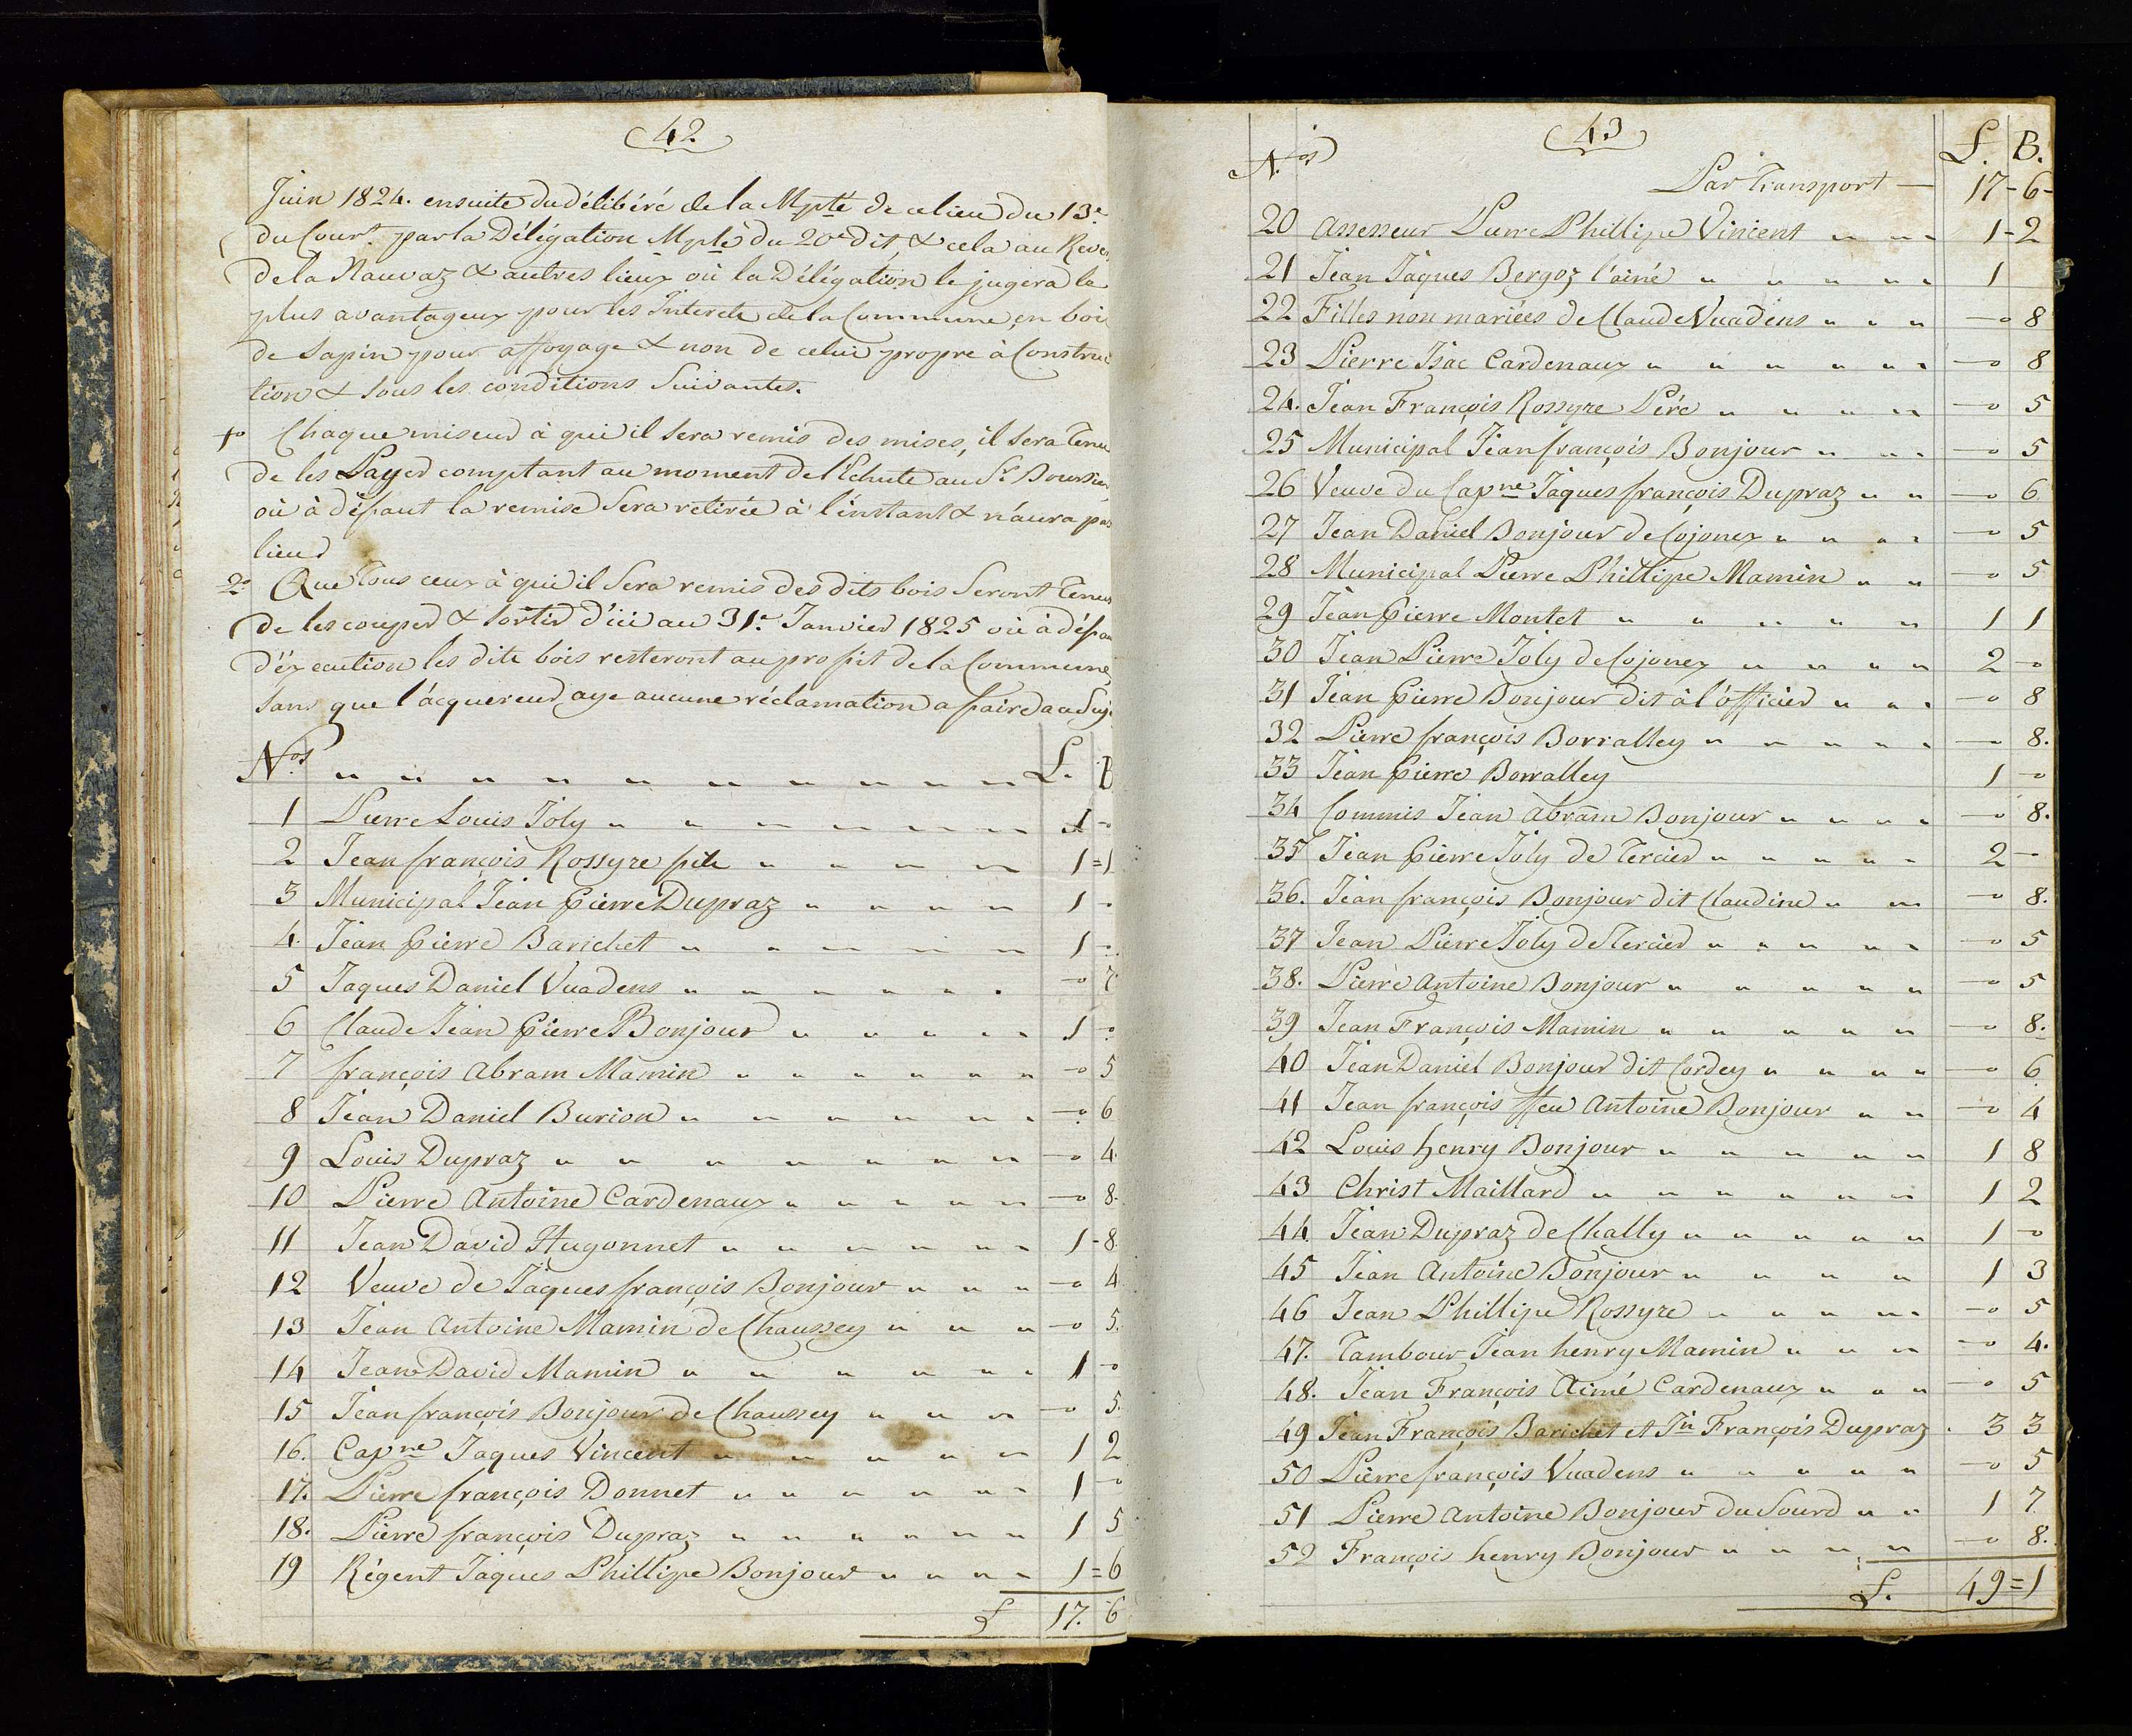 42
Juin 1824. ensuite du délibéré de la Mpté de ce lieu du 13e.
du Court. par la Délégation Mple du 20e dit, & cela au
de la Nauvaz & autres lieux où la Délégation le jugera le
plus avantageux pour les Interets de la Commune, en bois
de Sapin pour affoyage & non de celui propre à Construc
tion & sous les conditions Suivantes.
1o Chaque miseur à qui il sera remis des mises, il sera Tenu
de les Payer comptant au moment de l'Echute au Sr. Boursier,
où à défaut la remise Sera retirée à l'instant & n'aura pas
lieu
2o Que Tous ceux à qui il Sera remis des dits bois Seront Tenus
de les couper & sortir d'ici au 31e. Janvier 1825 où à défau
d'éxecution les dits bois resteront au profit de la Commune,
Sans que l'acquereur aye aucune réclamation a faire au Suje
Nos. " " " " " " " " " " L. B
1 Pierre Louis Joly " " " " " " 1 -
2 Jean françois Rossyre fils " " " " 1=1
3 Municipal Jean Pierre Dupraz " " " " 1 -
4. Jean Pierre Barichet " " " " " 1 -
5 Jaques Daniel Vuadens " " " " " " -o 7
6 Claude Jean Pierre Bonjour " " " " " 1 -o
7 françois Abram Mamin " " " " " " -o 5
8 Jean Daniel Burion " " " " " " -o 6
9 Louis Dupraz " " " " " " " -o 4.
10 Pierre Antoine Cardenaux " " " " " -o 8.
11 Jean David Hugonnet " " " " " " 1-8
12 Veuve de Jaques françois Bonjour " " " -o 4
13 Jean Antoine Mamin de Chaussey " " " -o 5.
14 Jean David Mamin " " " " " " 1 -o
15 Jean françois Bonjour de Chaussey " " " -o 5.
16. Capne Jaques Vincent " " " " " 1 2
17. Pierre françois Donnet " " " " " " 1 -o
18. Pierre françois Dupraz " " " " " " 1 5
19 Régent Jaques Phillipe Bonjour " " " " 1=6
L 17. 6
43
Nos L. B.
Par Transport — 17-6-
20 Assesseur Pierre Phillipe Vincent " " " 1-2
21 Jean Jaques Bergoz l'ainé " " " " " 1
22 Filles non mariées de Claude Vuadens " " " -o 8
23 Pierre Isac Cardenaux " " " " " " -o 8
24. Jean François Rossyre Pére " " " " -o 5
25 Municipal Jean françois Bonjour " " " -o 5
26 Veuve du Capne Jaques françois Dupraz " " -o 6
27 Jean Daniel Bonjour de Cojonex " " " " -o 5
28 Municipal Pierre Phillipe Mamin " " -o 5
29 Jean Pierre Montet " " " " " 1 1
30 Jean Pierre Joly de Cojonex " " " " 2 -o
31 Jean Pierre Bonjour dit à l'officier " " " -o 8
32 Pierre françois Borralley " " " " " -o 8.
33 Jean Pierre Borralley 1 -o
34 Commis Jean Abram Bonjour " " " " -o 8.
35 Jean Pierre Joly de Tercier " " " " " 2 -
36. Jean françois Bonjour dit Claudine " " -o 8.
37 Jean Pierre Joly de Tercier " " " " " -o 5
38. Pierre Antoine Bonjour " " " " " -o 5
39 Jean François Mamin " " " " " -o 8.
40 Jean Daniel Bonjour dit Cordey " " " " -o 6
41 Jean françois ffeu Antoine Bonjour " " -o 4
42 Louis henry Bonjour " " " " " 1 8
43 Christ Maillard " " " " " " 1 2
44. Jean Dupraz de Chally " " " " " 1 -o
45 Jean Antoine Bonjour " " " " 1 3
46 Jean Phillipe Rossyre " " " " " -o 5
47. Tambour Jean henry Mamin " " " -o 4.
48. Jean François Aimé Cardenaux " " " -o 5
49 Jean François Barichet et Jn François Dupraz . 3 3
50 Pierre françois Vuadens " " " " " -o 5
51 Pierre Antoine Bonjour du Sourd " " 1 7
52 François henry Bonjour " " " " -o 8.
L. 49=1